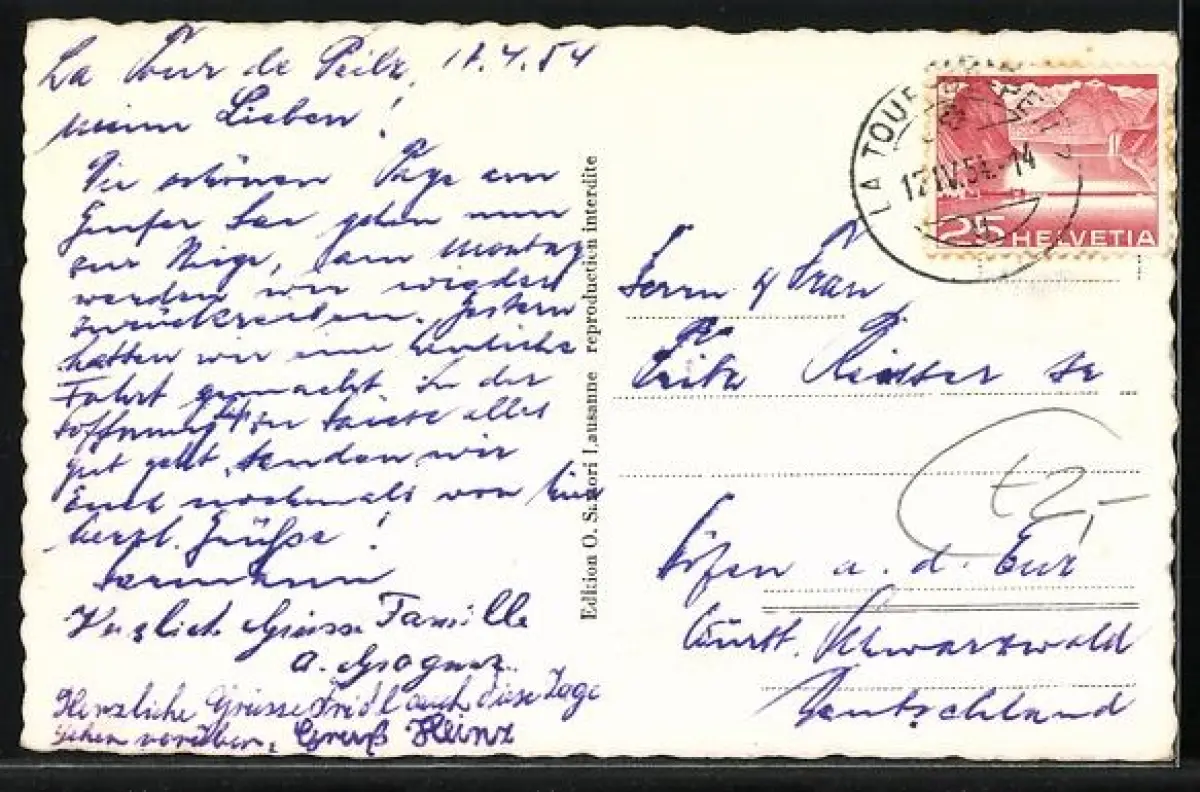 La Tour de Peilz, 17.4.54
meine Lieben!
Die schönen Tage am
Genfer See gehen nun
zur Neige, am Montag
werden wir wieder
zurückreisen. Gestern
hatten wir eine herrliche
Fahrt gemacht. In der
Hoffnung, zu Hause alles
gut geht, senden wir
Euch nochmals von hier
herzl. Grüsse!
Hermann
Herzlich Grüsse Famille
A.
Herzliche Grüsse Fridl auch diese Tage
gehen vorüber, Gruß Heinz
Edition O. Sartori Lausanne reproduction interdite
LA TOUR DE PEILZ
17.IV.54.-14
25 HELVETIA
Herrn & Frau
Fritz
Höfen a. d. Enz
Württ. Schwarzwald
Deutschland
t2,-